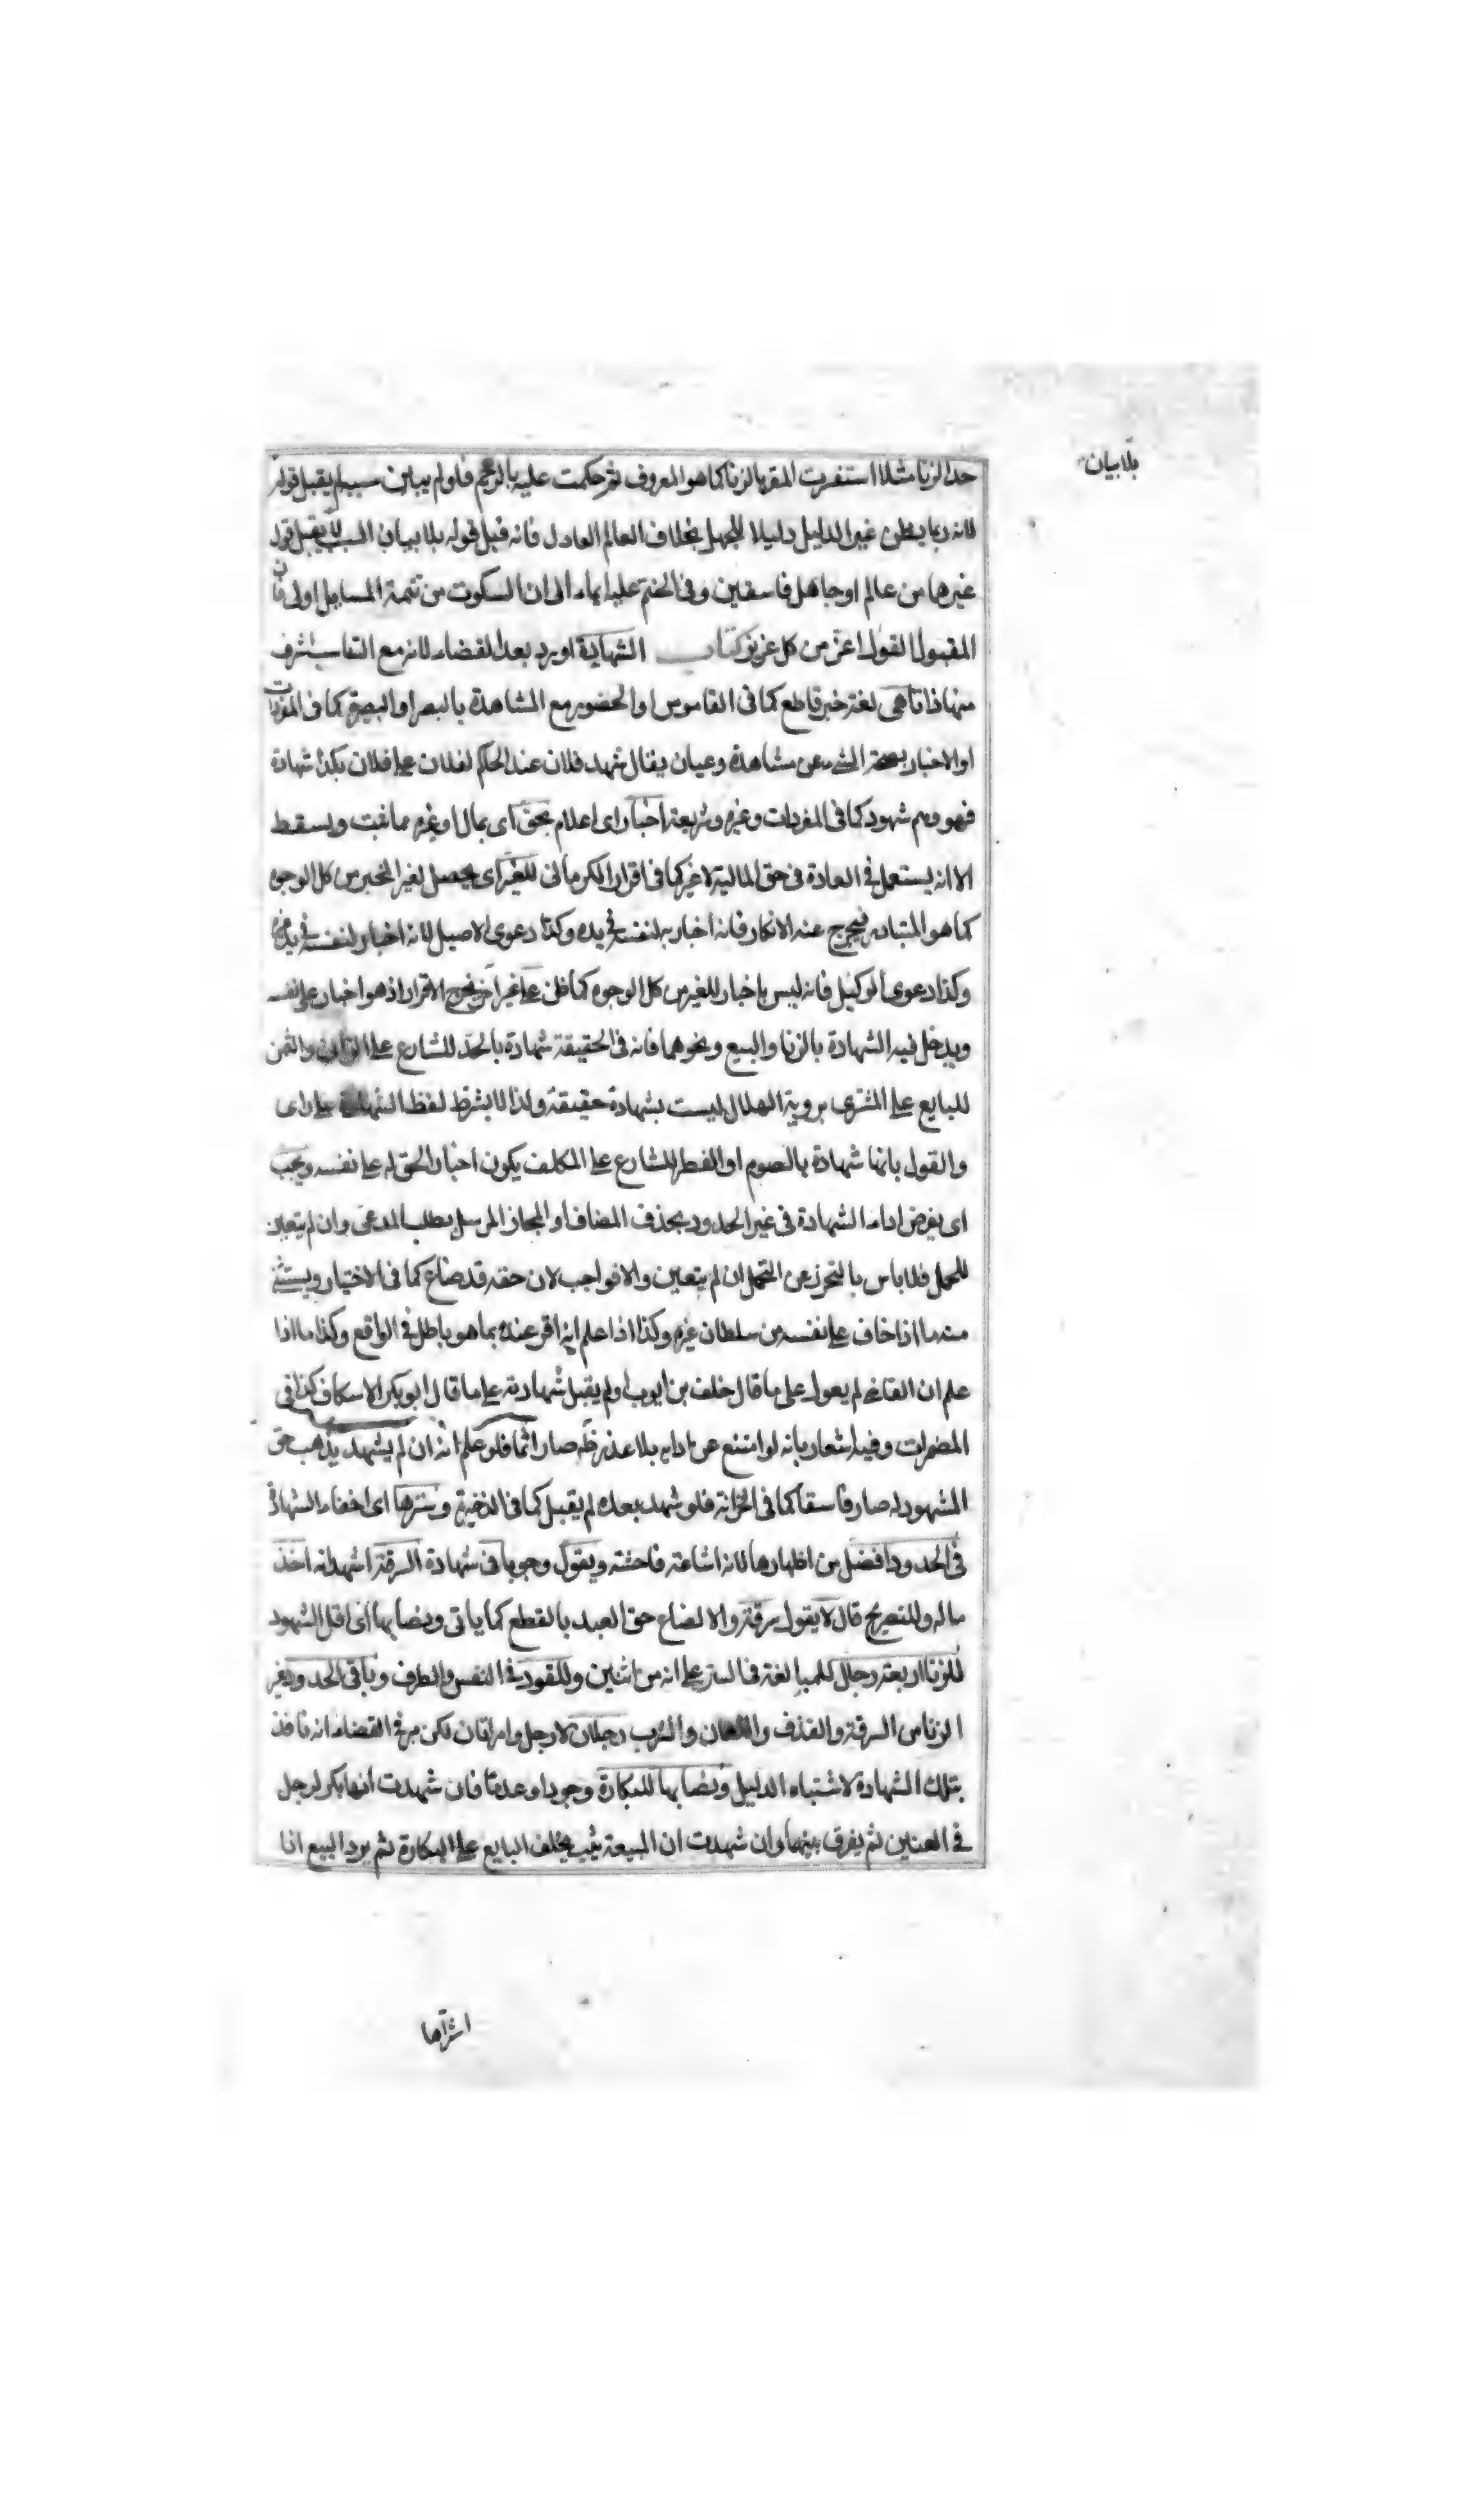 بلا بيان
حد الزنا مثلا استفسرت المقر بالزنا كما هو المعروف ثم حكمت عليه بالرجم فلو لم يبين سببه لم يقبل قوله
لانه ربما يظن غير الدليل دليلا للجهل بخلاف العالم العادل فانه قبل قوله بلا بيان السبب لا يقبل قول
غيرهما من عالم او جاهل فاسقين وفى الختم عليه ايماء الى ان السكوت من تتمة المسايل اولى فان
المقبول القول اعز من كل عزيز كتاب الشهادة اورد بعد القضاء لانه مع التقاسب اشرف
منها ذاتا هى لغة خبر قاطع كما فى القاموس او الحضور مع المشاهدة بالبصر او البصيرة كما فى المفردات
او الاخبار بصحة الشئ عن مشاهدة وعيان يقال شهد فلان عند الحاكم لفلان على فلان بكذا شهادة
فهو وهم شهود كما فى المفردات وغيره وشريعة اخبار اى اعلام بحق اى بمال او غيره مما يثبت ويسقط
الا انه يستعمل فى العادة فى حق المالية لا غير كما فى اقرار الكرمانى للغير اى يحصل لغير المخبر من كل الوجوه
كما هو المتبادر فيخرج عنه الانكار فانه اخبار به لنفسه فى يده وكذا دعوى الاصيل لانه اخبار لنفسه فى يد غيره
وكذا دعوى الوكيل فانه ليس باخبار للغير من كل الوجوه كما ظن على غير آخر فيخرج الاقرار اذ هو اخبار على نفسه
ويدخل فيه الشهادة بالزنا والبيع ونحوهما فانه فى الحقيقة شهادة بالحد للشارع على الزانى والثمن
للبايع على المشترى برؤية الهلال ليست بشهادة حقيقة ولذا لا يشترط لفظ الشهادة على راى
والقول بانها شهادة بالصوم او الفطر للشارع على المكلف يكون اخبار الحق له على نفسه ويجب
اى يفرض اداء الشهادة فى غير الحدود بحذف المضاف او المجاز المرسل بطلب المدعى وان لم يتعين
للحمل فلا باس بالتحرز عن التحمل ان لم يتعين والا فواجب لان حقه قد ضاع كما فى الاختيار ويستثنى
منه ما اذا خاف على نفسه من سلطان غيره وكذا اذا علم انه اقر عنده بما هو باطل فى الواقع وكذا ما اذا
علم ان القاضى لم يعول على ما قال خلف بن ايوب او لم يقبل شهادته على ما قال ابو بكر الاسكاف كذا فى
المضمرات وفيه اشعار بانه لو امتنع عن ادايه بلا عذر ظاهر صار آثما فلو علم انه ان لم يشهد يذهب حق
المشهود له صار فاسقا كما فى الخزانة فلو شهد بعده لم يقبل كما فى الذخيرة وسترها اى اخفاء الشهادة
فى الحدود افضل من اظهارها لانه اشاعة فاحشة ويقول وجوبا فى شهادة السرقة اشهد انه اخذ
ماله وللتصريح قال لا يقول سرقة والا لضاع حق العبد بالقطع كما ياتى ونصابها اى اقل الشهود
للزنا اربعة رجال للمبالغة فى الستر على انه من اثنين وللقود فى النفس والطرف وباقى الحدود غير
الزنا من السرقة والقذف واللعان والشرب رجلان لا رجل وامراتان لكن مر فى القضاء انه نافذ
بتلك الشهادة لاشتباه الدليل ونصابها للبكارة وجودا وعدما فان شهدت انها بكر اجل
فى العنين ثم يفرق بينهما وان شهدت ان المبيعة ثيب يحلف البايع على البكارة ثم يرد البيع اذا
اشتراها